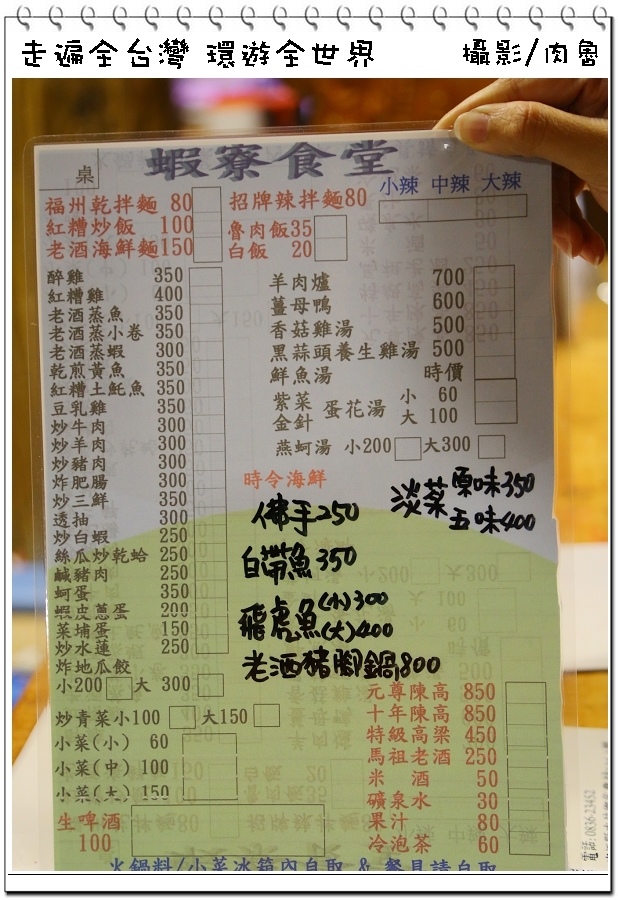 走遍全台灣 環遊全世界 攝影/肉魯
桌
蝦寮食堂
小辣 中辣 大辣
福州乾拌麵 80
紅糟炒飯 100
老酒海鮮麵150
招牌辣拌麵80
魯肉飯35
白飯 20
醉雞 350
紅糟雞 400
老酒蒸魚 350
老酒蒸小卷 350
老酒蒸蝦 300
乾煎黃魚 350
紅糟土魠魚 350
豆乳雞 350
炒牛肉 300
炒羊肉 300
炒豬肉 300
炸肥腸 300
炒三鮮 350
透抽 300
炒白蝦 250
絲瓜炒乾蛤 250
鹹豬肉 250
蚵蛋 350
蝦皮蔥蛋 200
菜埔蛋 150
炒水蓮 250
炸地瓜餃
小200 大 300
炒青菜小100 大150
小菜(小) 60
小菜(中) 100
小菜(大) 150
生啤酒
100
羊肉爐 700
薑母鴨 600
香菇雞湯 500
黑蒜頭養生雞湯 500
鮮魚湯 時價
紫菜 金針 蛋花湯 小 60 大 100
燕蚵湯 小200 大300
時令海鮮
淡菜 原味350
五味400
佛手250
白帶魚350
飛虎魚(小)300
(大)400
老酒豬腳鍋800
元尊陳高 850
十年陳高 850
特級高梁 450
馬祖老酒 250
米酒 50
礦泉水 30
果汁 80
冷泡茶 60
火鍋料/小菜冰箱內自取 & 餐具請自取
電話:0836-23452